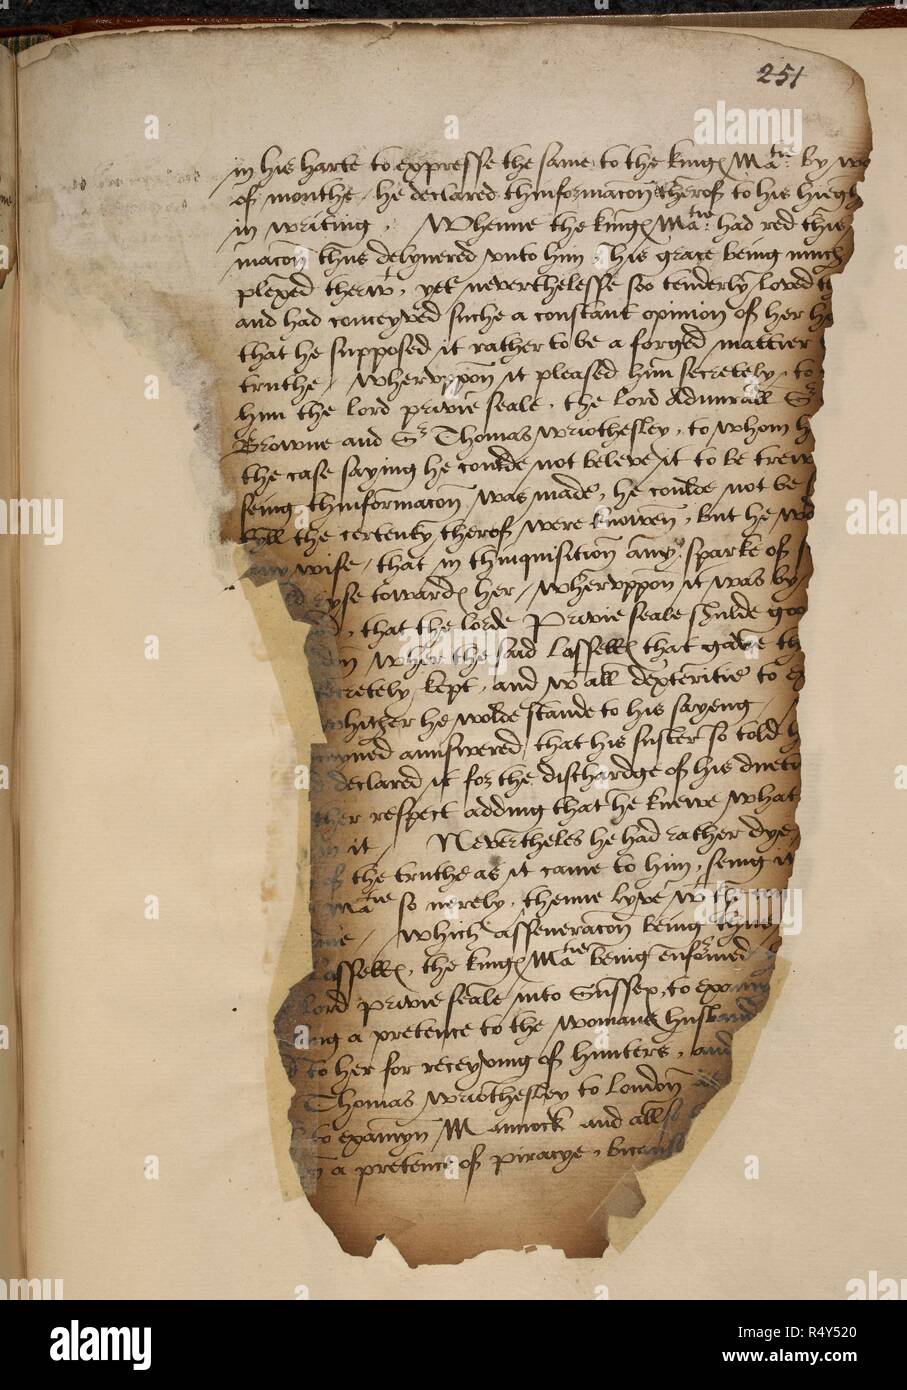 251
in his harte to expresse the same to the kinges Matie by wo
of mouthe, he declared thinformacon therof to his hiegh
in writing. Whenne the kinges Matie had red this
macon thus delyuered vnto him, his grace being much
plexed therwt, yet neverthelesse soo tenderly loved
and had conceyved suche a constant opinion of her
that he supposed it rather to be a forged mattier
truthe, Whervppon it pleased him secretely, to
him the lord privie seale, the lord Admirall Sr
Browne and Sr Thomas wriothesley, to whom h
the case saying he coulde not beleve it to be trew
seing thinformacon was made, he coulde not be
tyll the certenty therof were knowen, but he wo
any wise, that in thinquisition any sparke of
ryse towardes her, Whervppon it was by
that the lorde Privie seale shulde goo
wher the said lassells that gave th
secretely kept, and wt all dexteritie to ex
whither he wolde stande to his sayeng,
myned aunswered, that his suster so told h
declared it for the dischardge of his duety
ther respect adding that he knewe what
in it, Nevertheles he had rather dye
of the truthe as it came to him, seing it
Matie so nerely, thenne lyve wt th
Which asseueracon being thus
lassells, the kinges Matie being enformed
lord privie seale into Sussex, to examyn
ing a pretence to the womans husband
to her for receyving of hunters, and
Thomas wriothesley to london
to examyn Mannock and all so
a pretence of piracye, bicause
a alamy
alamy
Image ID: R4Y520
www.alamy.com